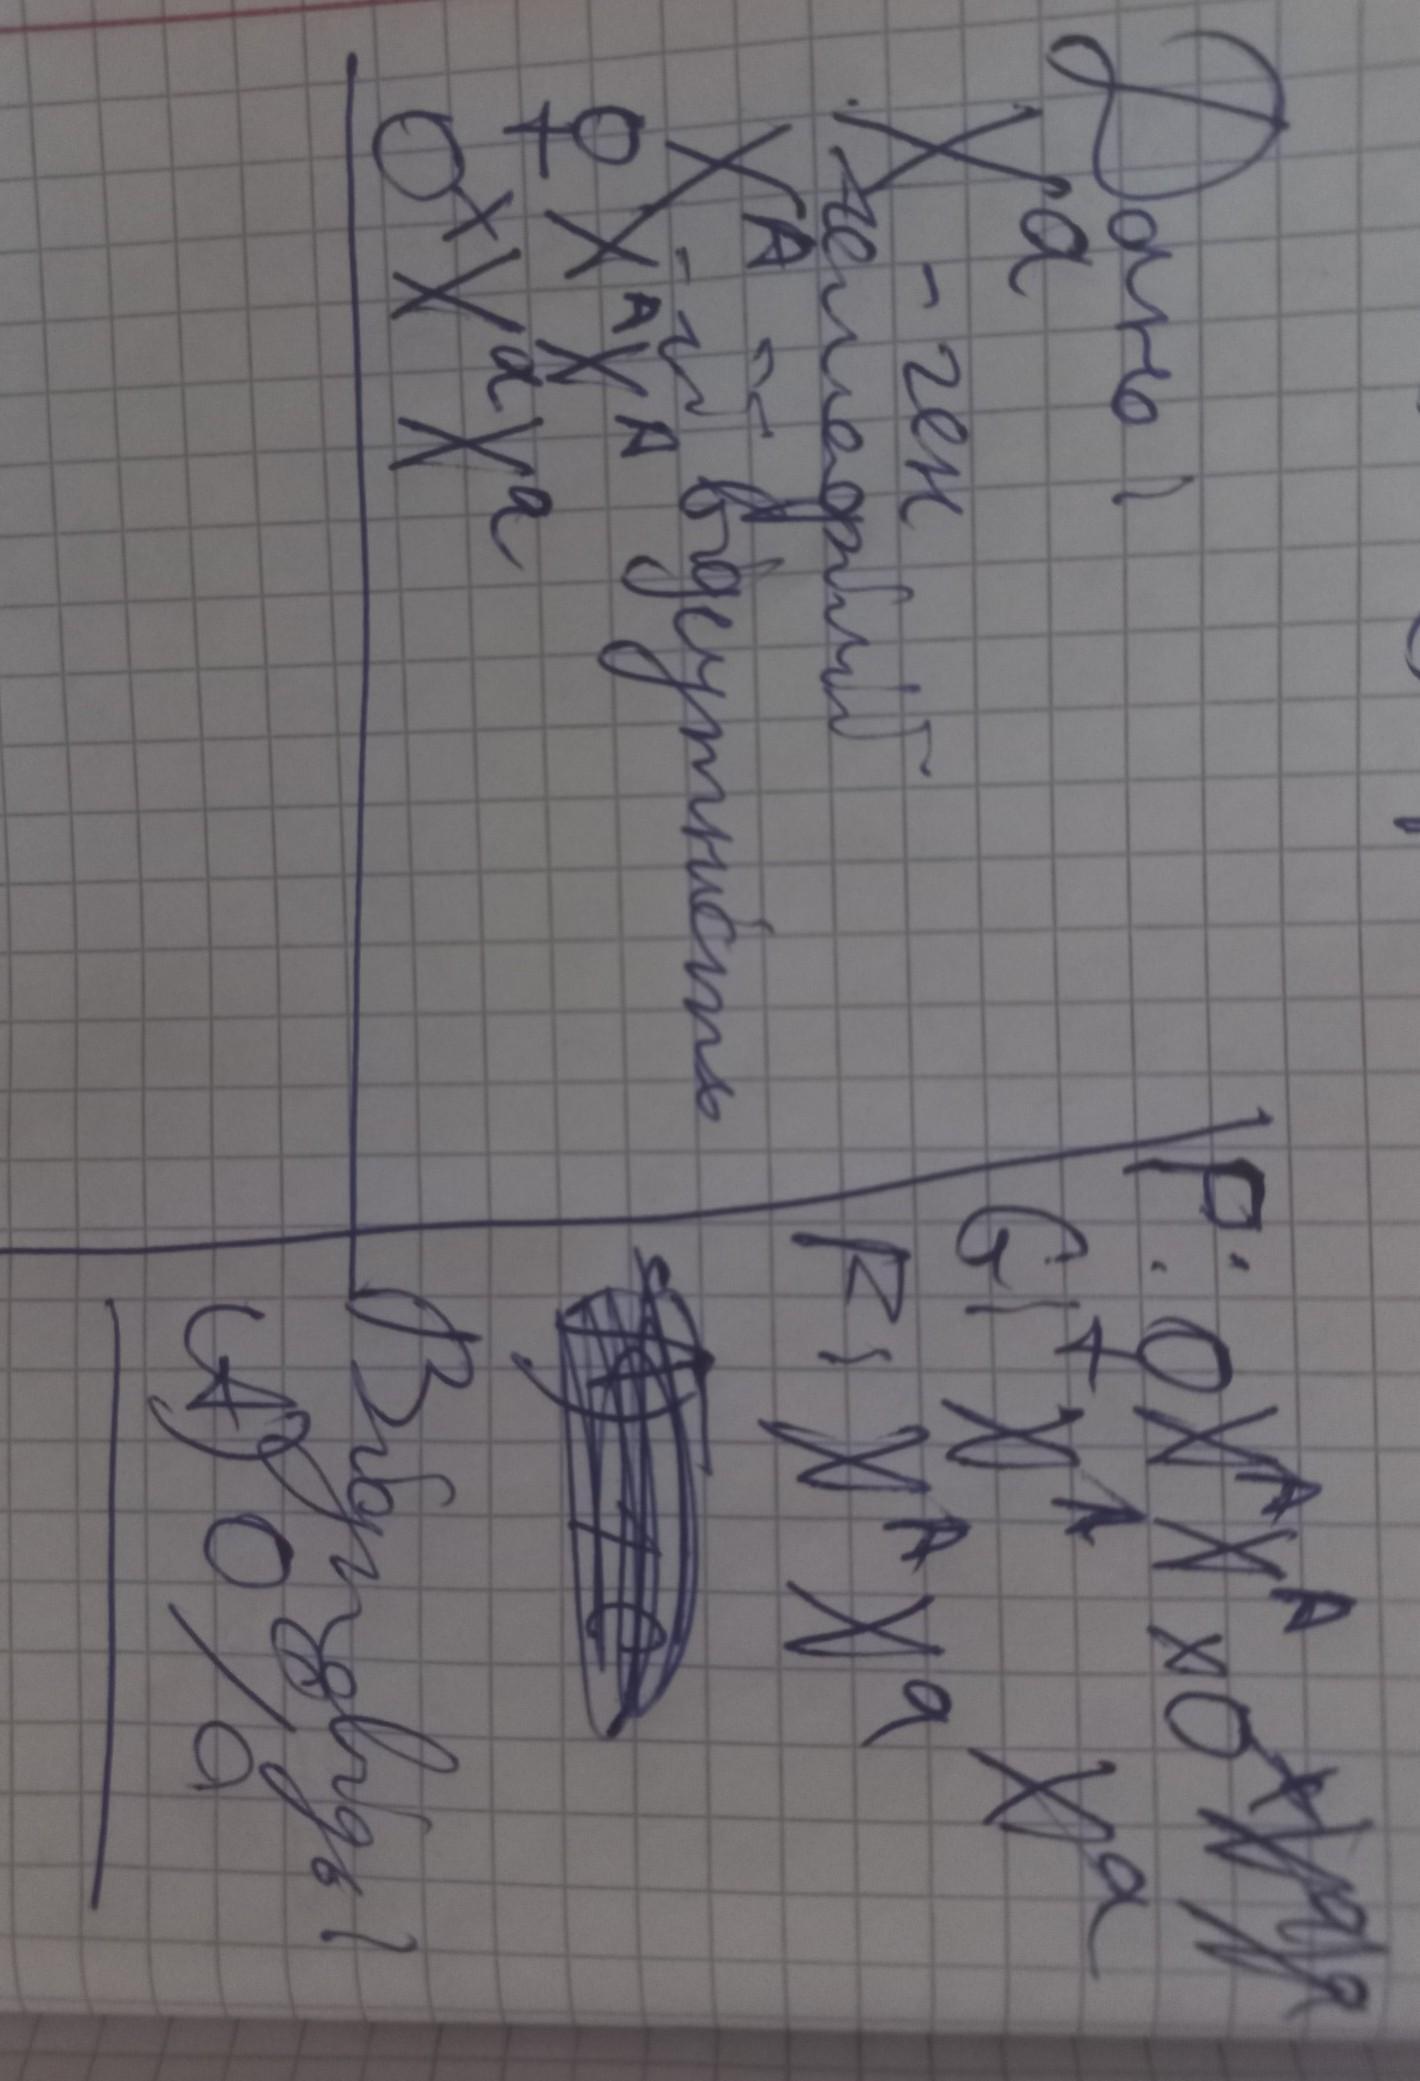 Дано:
Xᵃ - ген
гемофілії
Xᴬ -
відсутність
♀ XᴬXᴬ
♂ XᵃXᵃ
P: ♀ XᴬXᴬ x ♂ XᵃXᵃ
G: Xᴬ Xᵃ
F: XᴬXᵃ
Відповідь:
А) 0%